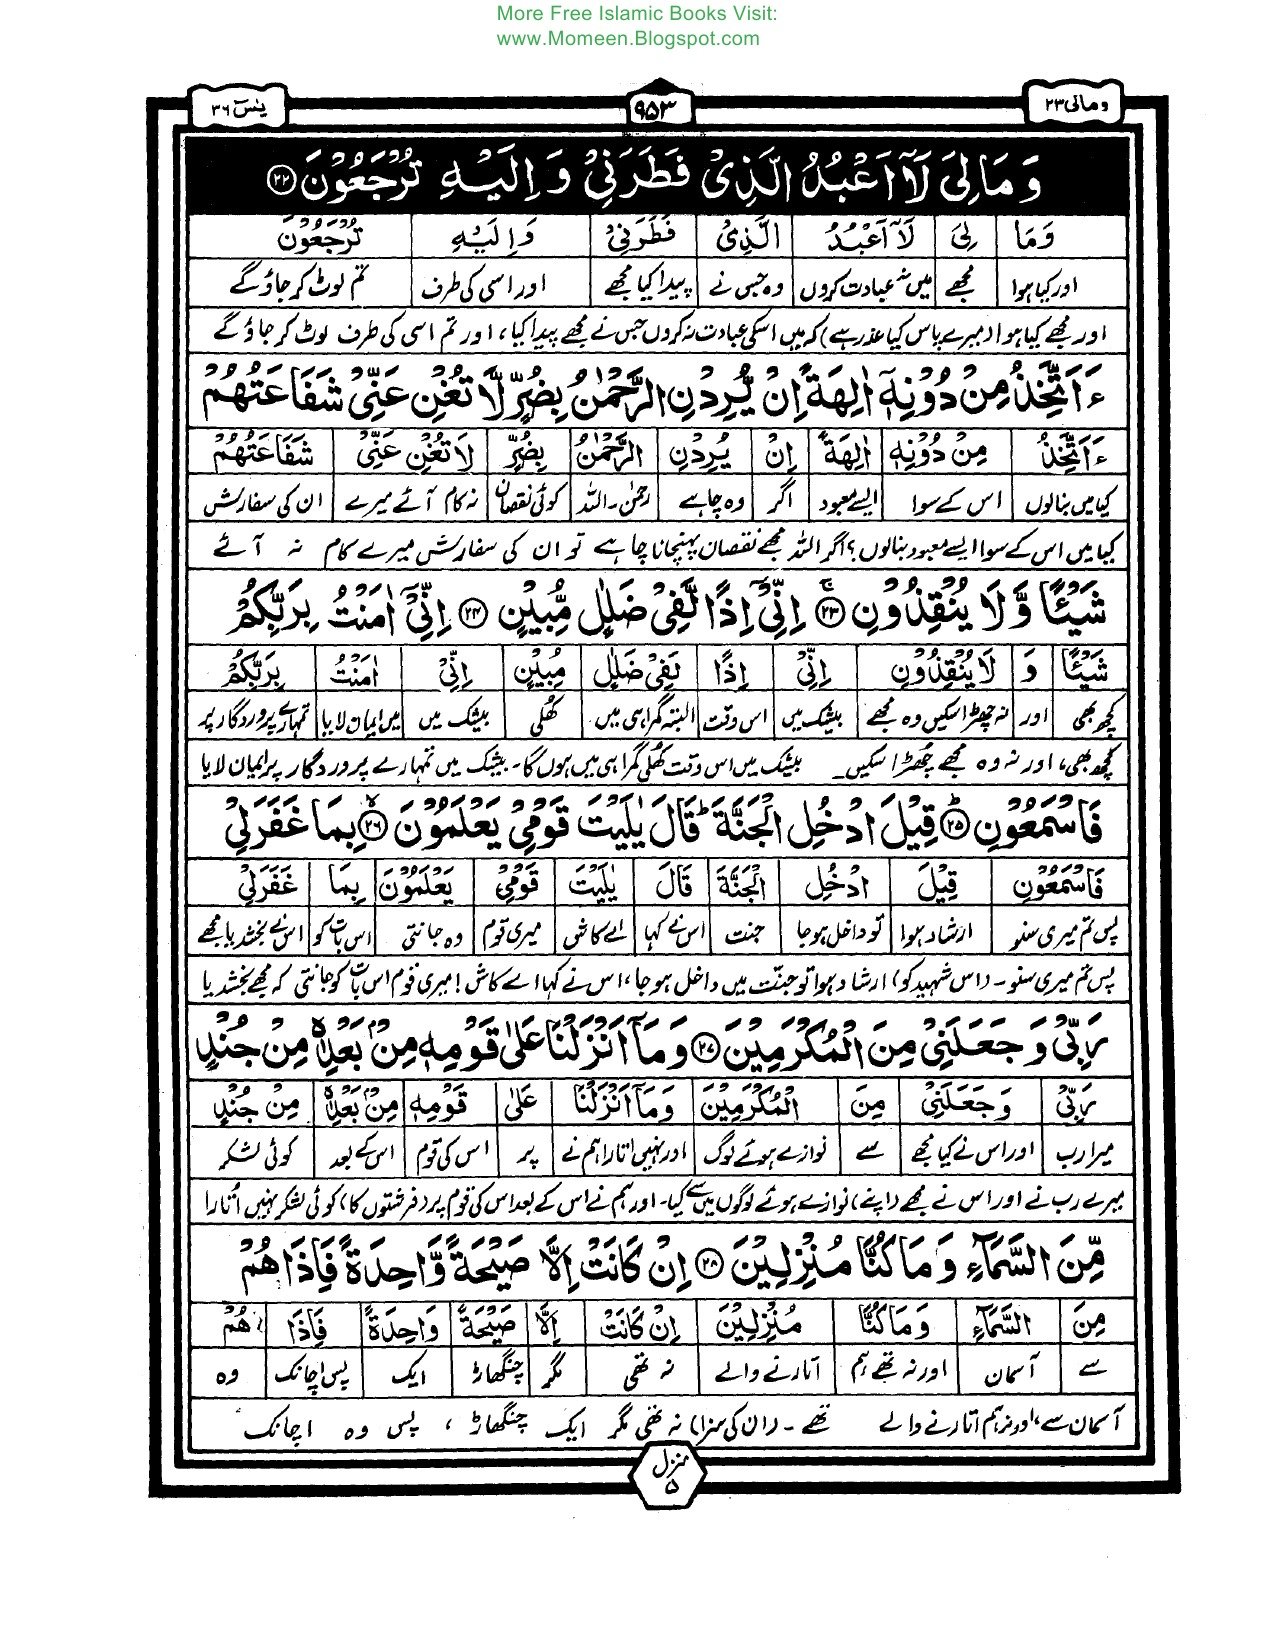 More Free Islamic Books Visit:
www.Momeen.Blogspot.com
ومالی۲۳
۹۵۳
یٰسٓ ۳۶
وَمَالِیَ لَآ اَعْبُدُ الَّذِیْ فَطَرَنِیْ وَ اِلَیْہِ تُرْجَعُوْنَ ۲۲
وَمَا لِیَ لَآ اَعْبُدُ الَّذِیْ فَطَرَنِیْ وَاِلَیْہِ تُرْجَعُوْنَ
اور کیا ہوا مجھے میں نہ عبادت کروں وہ جس نے پیدا کیا مجھے اور اسی کی طرف تم لوٹ کر جاؤ گے
اور مجھے کیا ہوا (میرے پاس کیا عذر ہے) کہ میں اسکی عبادت نہ کروں جس نے مجھے پیدا کیا، اور تم اسی کی طرف لوٹ کر جاؤ گے
ءَاَتَّخِذُ مِنْ دُوْنِہٖٓ اٰلِھَۃً اِنْ یُّرِدْنِ الرَّحْمٰنُ بِضُرٍّ لَّا تُغْنِ عَنِّیْ شَفَاعَتُھُمْ
ءَاَتَّخِذُ مِنْ دُوْنِہٖٓ اٰلِھَۃً اِنْ یُرِدْنِ الرَّحْمٰنُ بِضُرٍّ لَا تُغْنِ عَنِّیْ شَفَاعَتُھُمْ
کیا میں بنالوں اس کے سوا ایسے معبود اگر وہ چاہے رحمٰن۔اللہ کوئی نقصان نہ کام آئے میرے ان کی سفارش
کیا میں اس کے سوا ایسے معبود بنالوں؟ اگر اللہ مجھے نقصان پہنچانا چاہے تو ان کی سفارش میرے کام نہ آئے
شَیْـًٔا وَّ لَا یُنْقِذُوْنِ ۲۳ اِنِّیْٓ اِذًا لَّفِیْ ضَلٰلٍ مُّبِیْنٍ ۲۴ اِنِّیْٓ اٰمَنْتُ بِرَبِّکُمْ
شَیْـًٔا وَ لَا یُنْقِذُوْنِ اِنِّیْٓ اِذًا لَفِیْ ضَلٰلٍ مُبِیْنٍ اِنِّیْٓ اٰمَنْتُ بِرَبِّکُمْ
کچھ بھی اور نہ چھڑا سکیں وہ مجھے بیشک میں اس وقت البتہ گمراہی میں کھلی بیشک میں میں ایمان لایا تمہارے پروردگار پر
کچھ بھی، اور نہ وہ مجھے چھڑا سکیں۔ بیشک میں اس وقت کھلی گمراہی میں ہوں گا۔ بیشک میں تمہارے پروردگار پر ایمان لایا
فَاسْمَعُوْنِ ۲۵ قِیْلَ ادْخُلِ الْجَنَّۃَ قَالَ یٰلَیْتَ قَوْمِیْ یَعْلَمُوْنَ ۲۶ بِمَا غَفَرَلِیْ
فَاسْمَعُوْنِ قِیْلَ ادْخُلِ الْجَنَّۃَ قَالَ یٰلَیْتَ قَوْمِیْ یَعْلَمُوْنَ بِمَا غَفَرَلِیْ
پس تم میری سنو ارشاد ہوا تو داخل ہو جا جنت اس نے کہا اے کاش میری قوم وہ جانتی اس بات کو اس نے بخشدیا مجھے
پس تم میری سنو۔ (اس شہید کو) ارشاد ہوا تو جنت میں داخل ہو جا، اس نے کہا اے کاش! میری قوم اس بات کو جانتی کہ مجھے بخشدیا
رَبِّیْ وَ جَعَلَنِیْ مِنَ الْمُکْرَمِیْنَ ۲۷ وَمَآ اَنْزَلْنَا عَلٰی قَوْمِہٖ مِنْۢ بَعْدِہٖ مِنْ جُنْدٍ
رَبِّیْ وَجَعَلَنِیْ مِنَ الْمُکْرَمِیْنَ وَمَآ اَنْزَلْنَا عَلٰی قَوْمِہٖ مِنْۢ بَعْدِہٖ مِنْ جُنْدٍ
میرا رب اور اس نے کیا مجھے سے نوازے ہوئے لوگ اور نہیں اتارا ہم نے پر اس کی قوم اس کے بعد کوئی لشکر
میرے رب نے اور اس نے مجھے (اپنے) نوازے ہوئے لوگوں میں سے کیا۔ اور ہم نے اس کے بعد اس کی قوم پر (فرشتوں کا) کوئی لشکر نہیں اتارا
مِّنَ السَّمَآءِ وَمَا کُنَّا مُنْزِلِیْنَ ۲۸ اِنْ کَانَتْ اِلَّا صَیْحَۃً وَّاحِدَۃً فَاِذَا ھُمْ
مِنَ السَّمَآءِ وَمَا کُنَّا مُنْزِلِیْنَ اِنْ کَانَتْ اِلَّا صَیْحَۃً وَاحِدَۃً فَاِذَا ھُمْ
سے آسمان اور نہ تھے ہم اتارنے والے نہ تھی مگر چنگھاڑ ایک پس اچانک وہ
آسمان سے، اور نہ ہم اتارنے والے تھے۔ (ان کی سزا) نہ تھی مگر ایک چنگھاڑ، پس وہ اچانک
منزل
۵